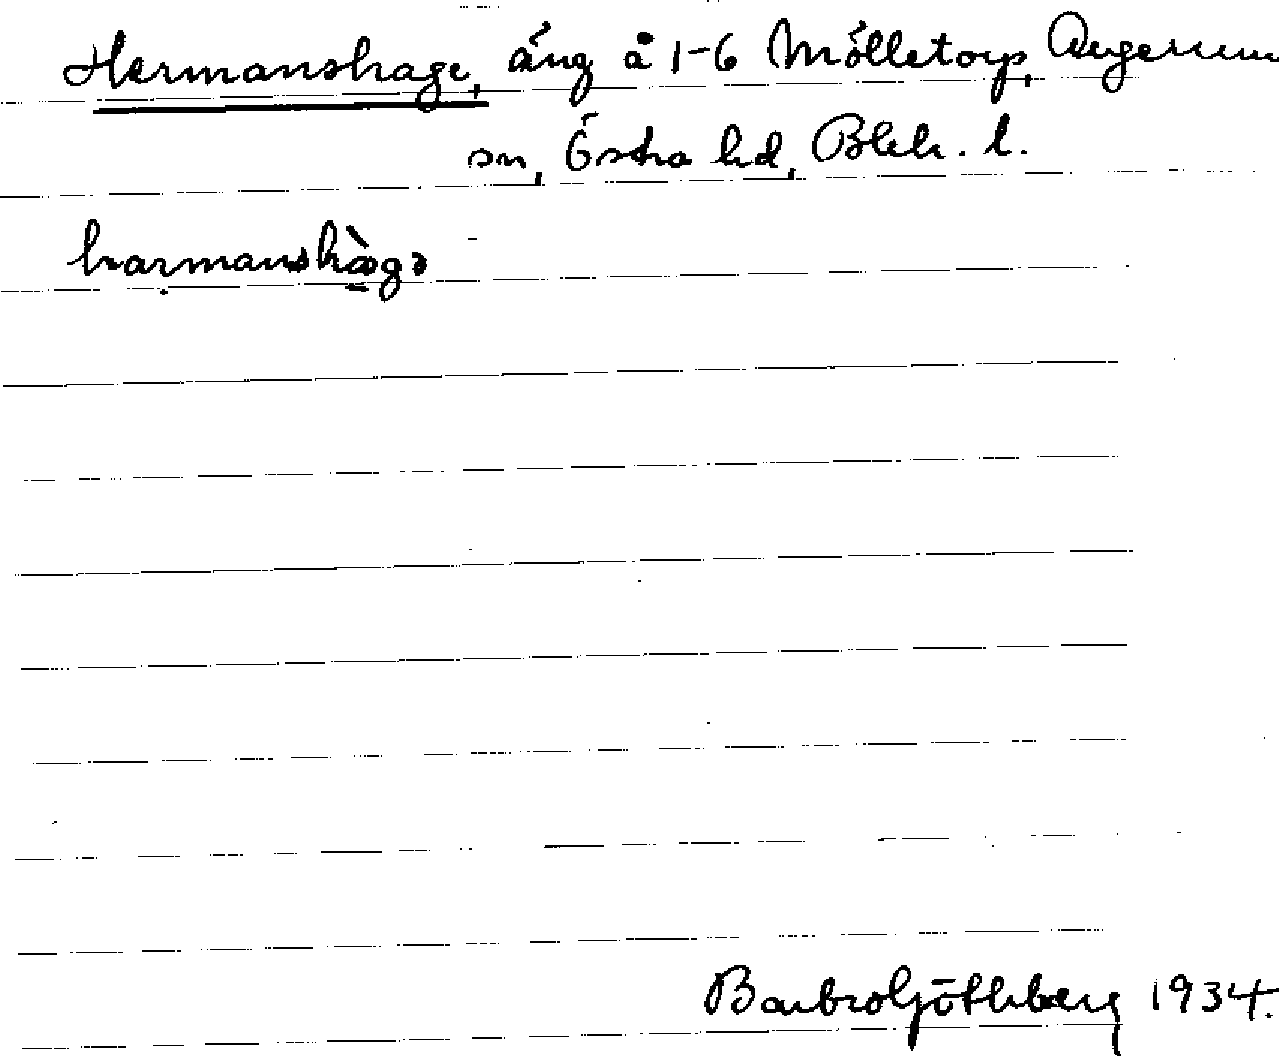 Hermanshage, äng å 1-6 Mölletorp, Augerum
sn, Östra hd, Blek. l.
harmanshàgə
Barbro Göthberg 1934.